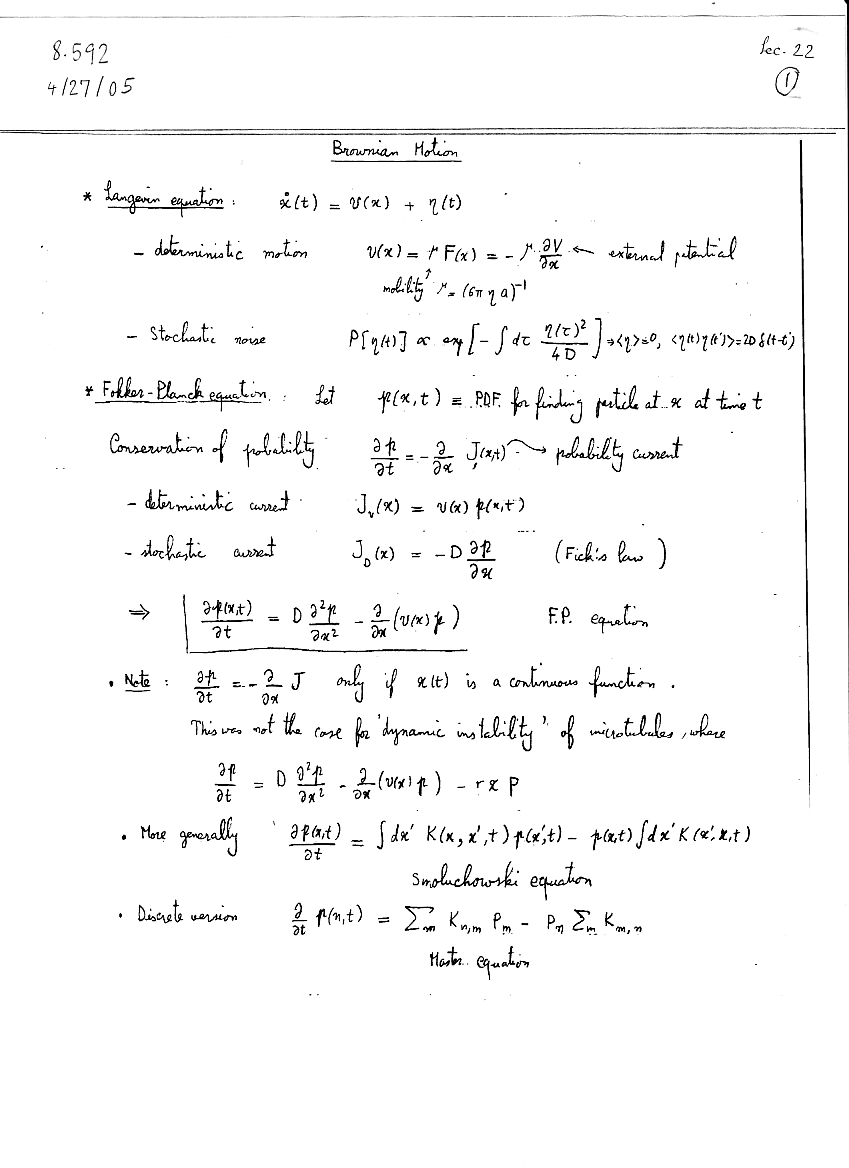 8.592
lec. 22
4/27/05
①
Brownian Motion
* Langevin equation : ẋ(t) = v(x) + η(t)
– deterministic motion v(x) = μ F(x) = – μ ∂V/∂x ← external potential
mobility ↑ μ = (6π η a)⁻¹
– Stochastic noise P[η(t)] ∝ exp[– ∫ dτ η(τ)²/4D] ⇒ <η>=0, <η(t)η(t')>=2D δ(t-t')
* Fokker-Planck equation : Let p(x,t) ≡ PDF for finding particle at x at time t
Conservation of probability ∂p/∂t = – ∂/∂x J(x,t) → probability current
– deterministic current Jᵥ(x) = v(x) p(x,t)
– stochastic current J_D(x) = – D ∂p/∂x (Fick's law)
⇒ ∂p(x,t)/∂t = D ∂²p/∂x² – ∂/∂x (v(x) p) F.P. equation
• Note : ∂p/∂t = – ∂/∂x J only if x(t) is a continuous function .
This was not the case for 'dynamic instability' of microtubules, where
∂p/∂t = D ∂²p/∂x² – ∂/∂x (v(x) p) – r x p
• More generally ∂p(x,t)/∂t = ∫dx' K(x, x', t) p(x',t) – p(x,t) ∫dx' K(x', x, t)
Smoluchowski equation
• Discrete version ∂/∂t p(n,t) = Σₘ K_{n,m} Pₘ – Pₙ Σₘ K_{m,n}
Master equation